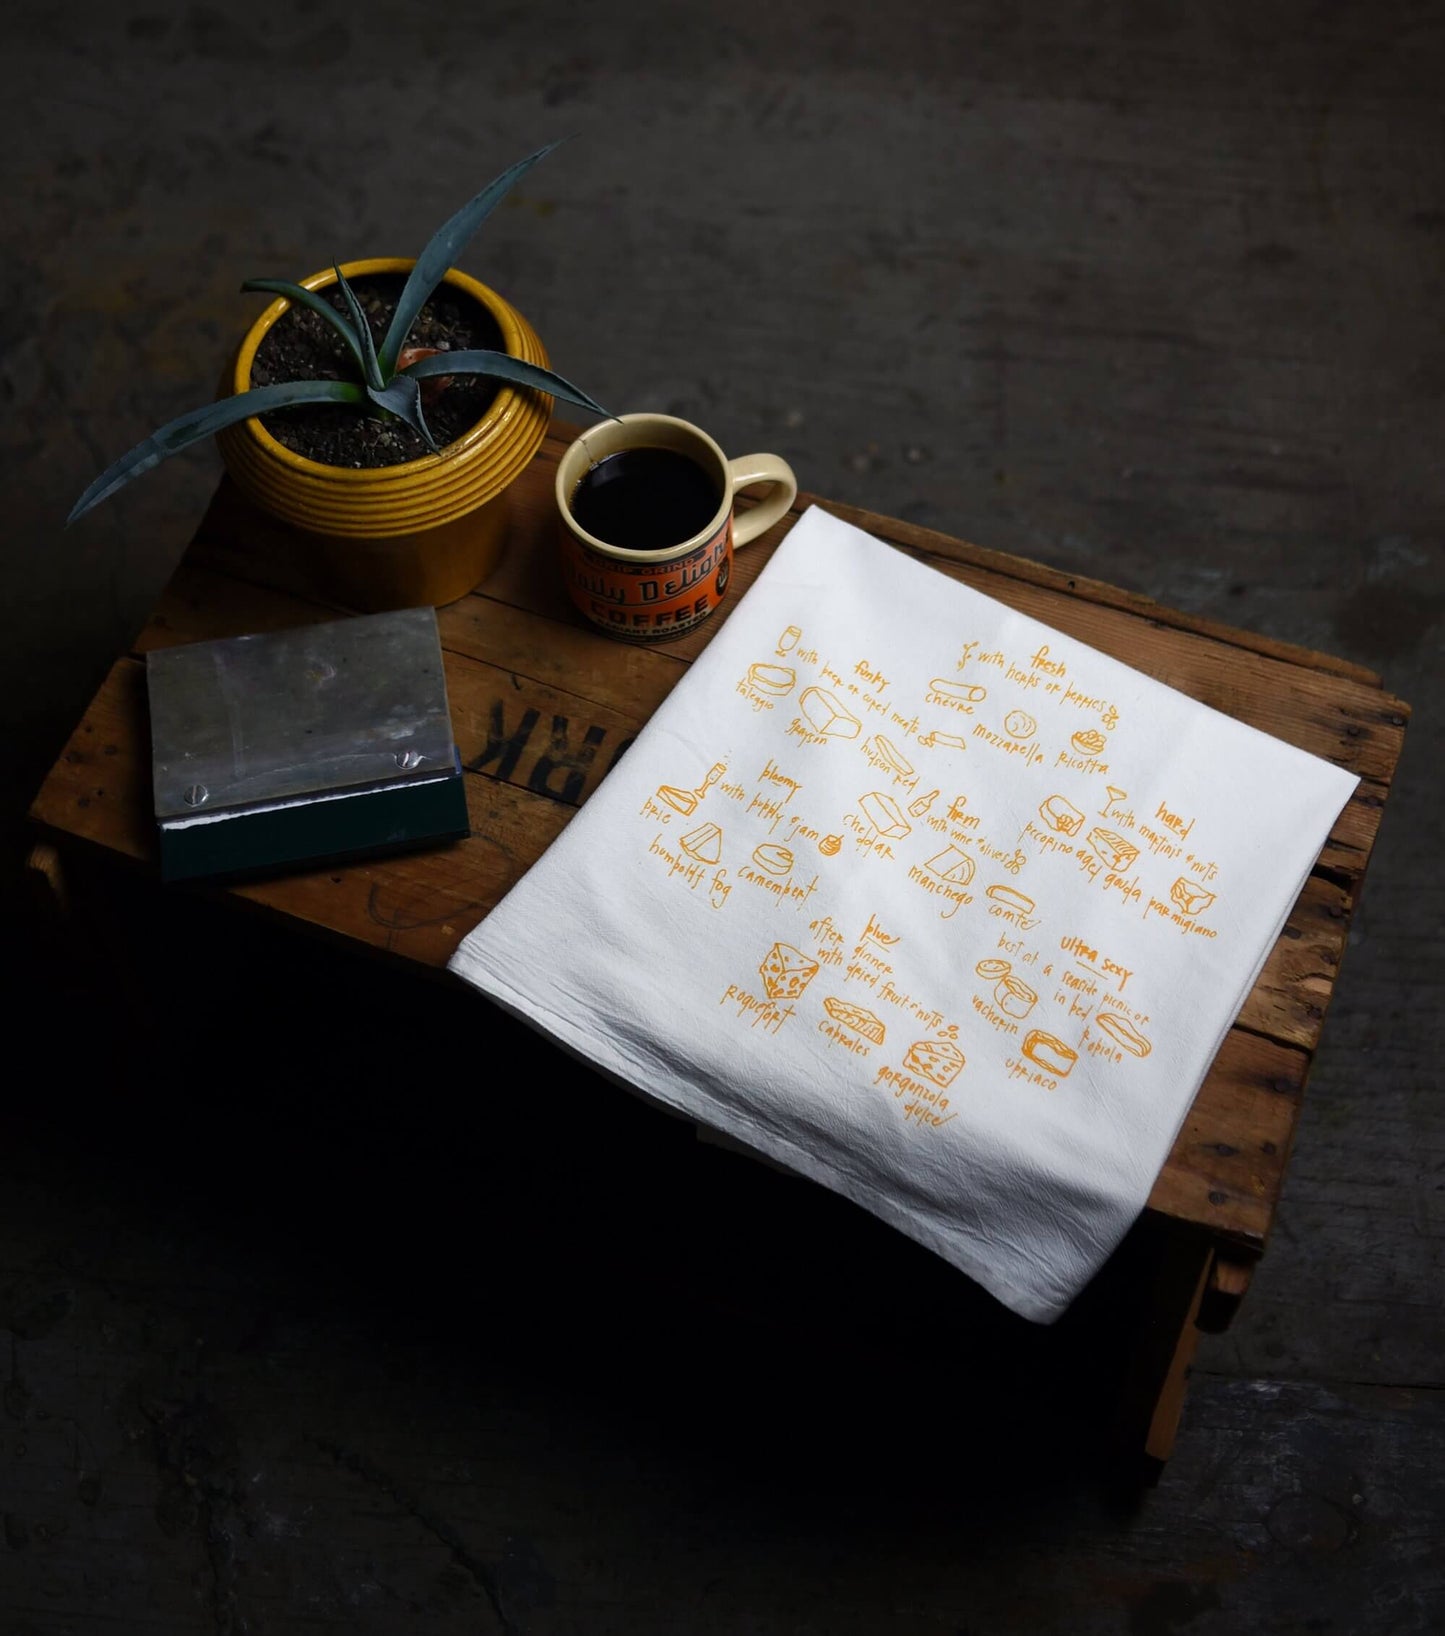 DRIP GRIND
Daily Delight
COFFEE
RK
fresh
with herbs or berries
chèvre
mozzarella
ricotta
funky
with beer or cured meats
taleggio
grayson
hudson red
bloomy
with bubbly & jam
brie
humboldt fog
camembert
firm
with wine & olives
cheddar
manchego
comté
hard
with martinis & nuts
pecorino
aged gouda
parmigiano
blue
after dinner
with dried fruit & nuts
roquefort
cabrales
gorgonzola
dulce
ultra sexy
best at a seaside picnic or
in bed
vacherin
robiola
ubriaco